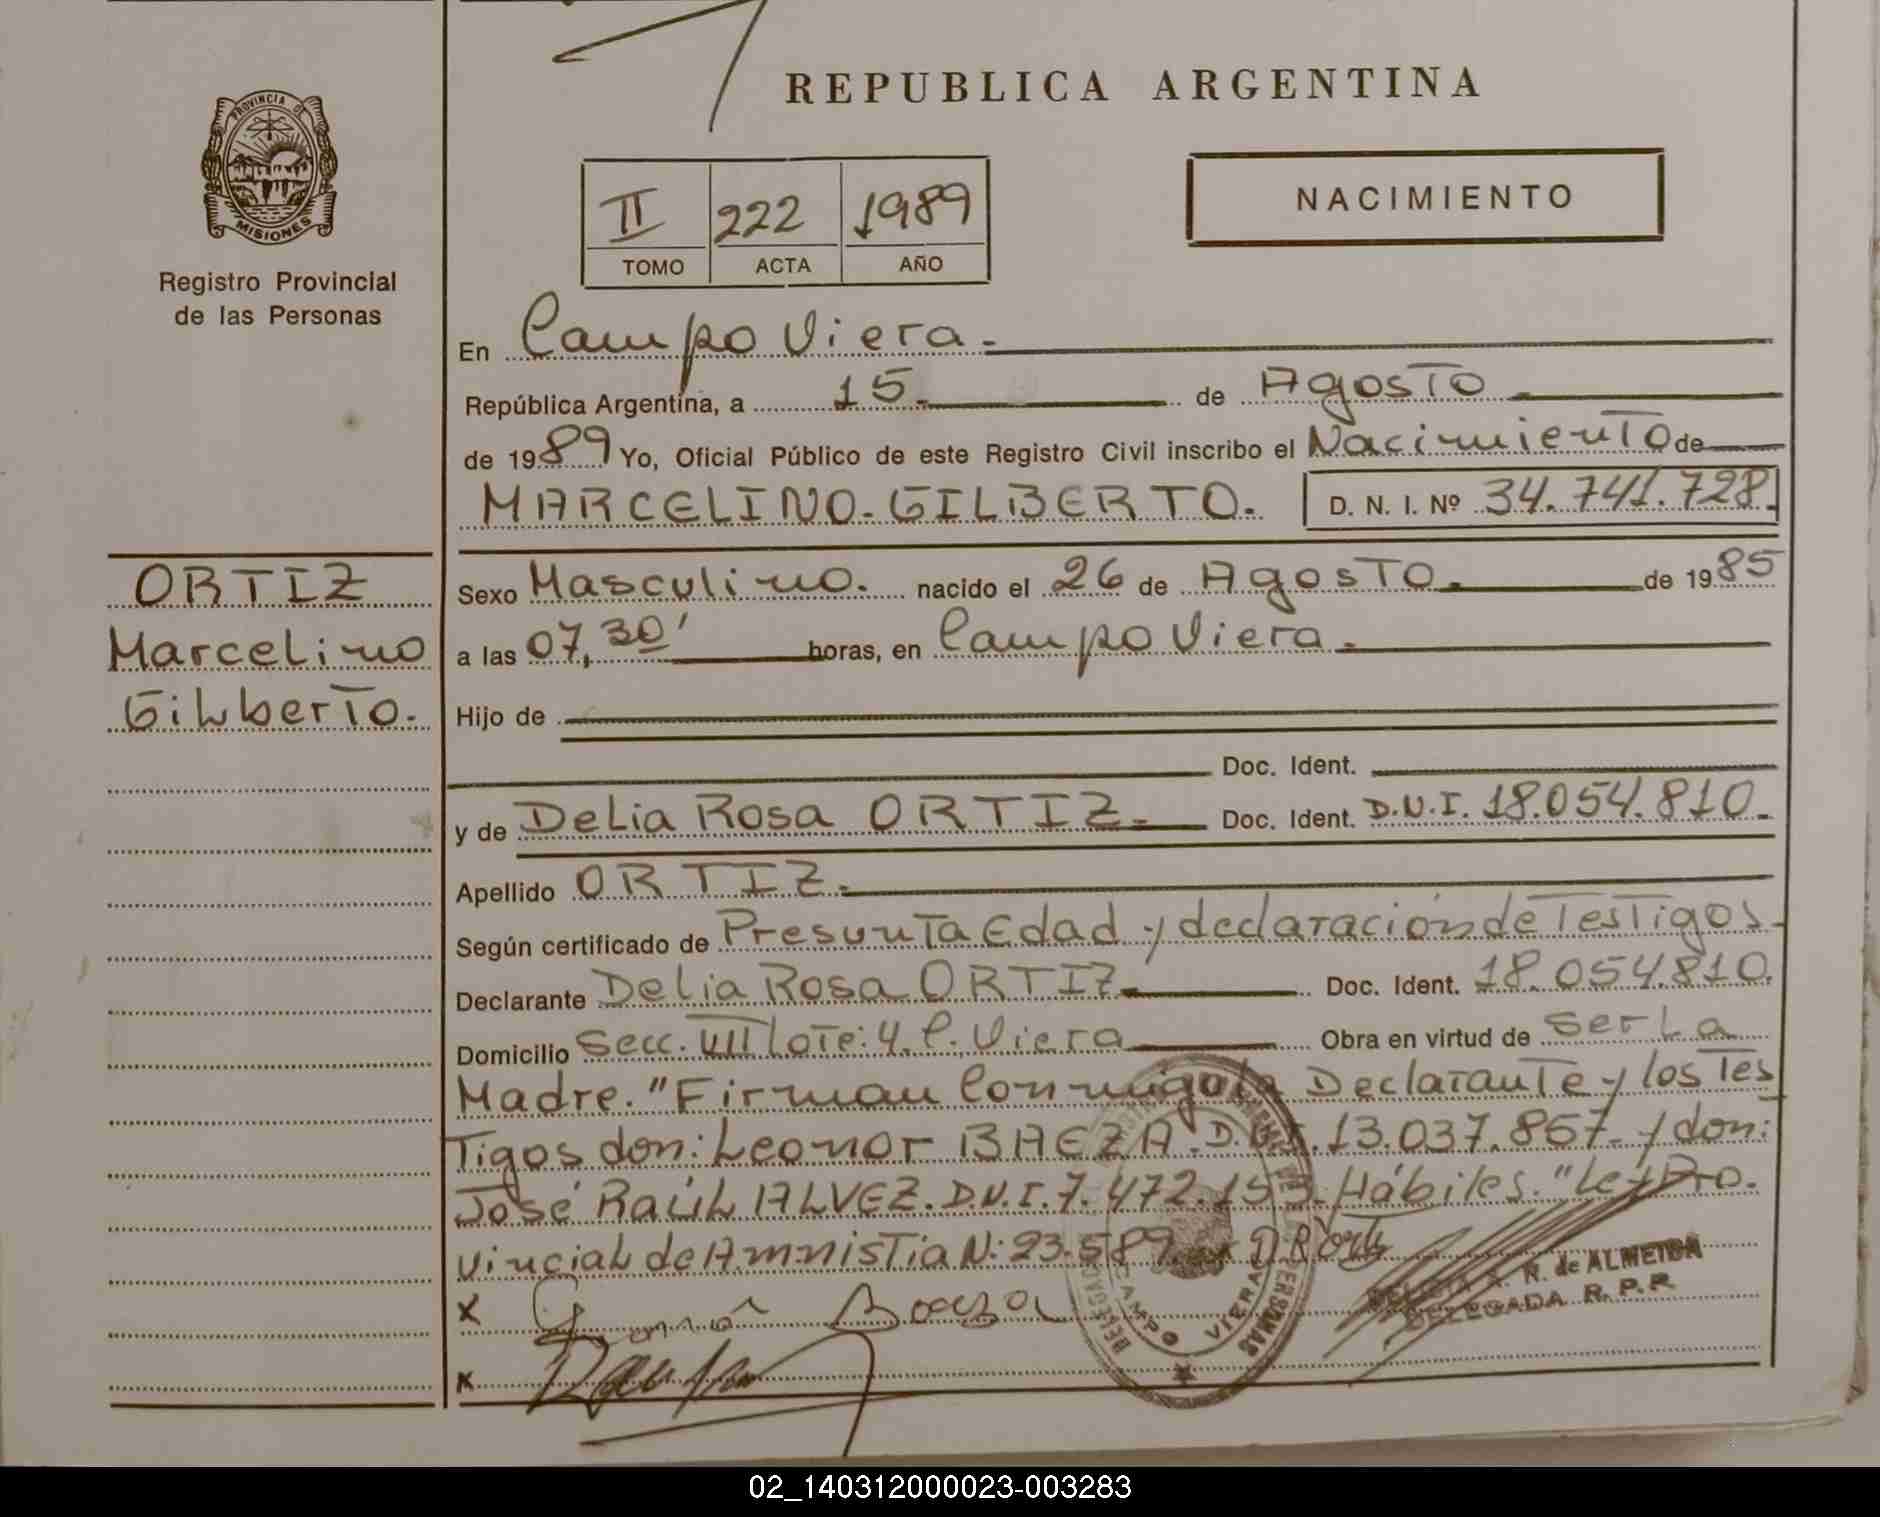 REPUBLICA ARGENTINA
PROVINCIA DE
MISIONES
Registro Provincial
de las Personas
NACIMIENTO
II 222 1989
TOMO ACTA AÑO
En Campo Viera.
República Argentina, a 15 de Agosto
de 1989 Yo, Oficial Público de este Registro Civil inscribo el Nacimiento de
MARCELINO. GILBERTO. D. N. I. Nº 34.741.728.
ORTIZ
Marcelino
Gilberto.
Sexo Masculino. nacido el 26 de Agosto. de 1985
a las 07,30' horas, en Campo Viera.
Hijo de
Doc. Ident.
y de Delia Rosa ORTIZ. Doc. Ident. D.N.I. 18.054.810.
Apellido ORTIZ.
Según certificado de Presunta Edad y declaración de Testigos-
Declarante Delia Rosa ORTIZ Doc. Ident. 18.054.810.
Domicilio Secc. VIII lote: 4. C. Viera Obra en virtud de ser la
Madre. "Firman Conmigo la Declarante y los Tes
Tigos don: Leonor BAEZA. D.N.I. 13.037.857- y don:
José Raúl ALVEZ. D.N.I. 7.472.153. Hábiles. "Ley Pro.
vincial de Amnistia N: 23.589.
X Baeza
DELEGADA R. P. P.
N. de ALMEIDA
CAMPO VIERA
PERSONAS
X
02_140312000023-003283